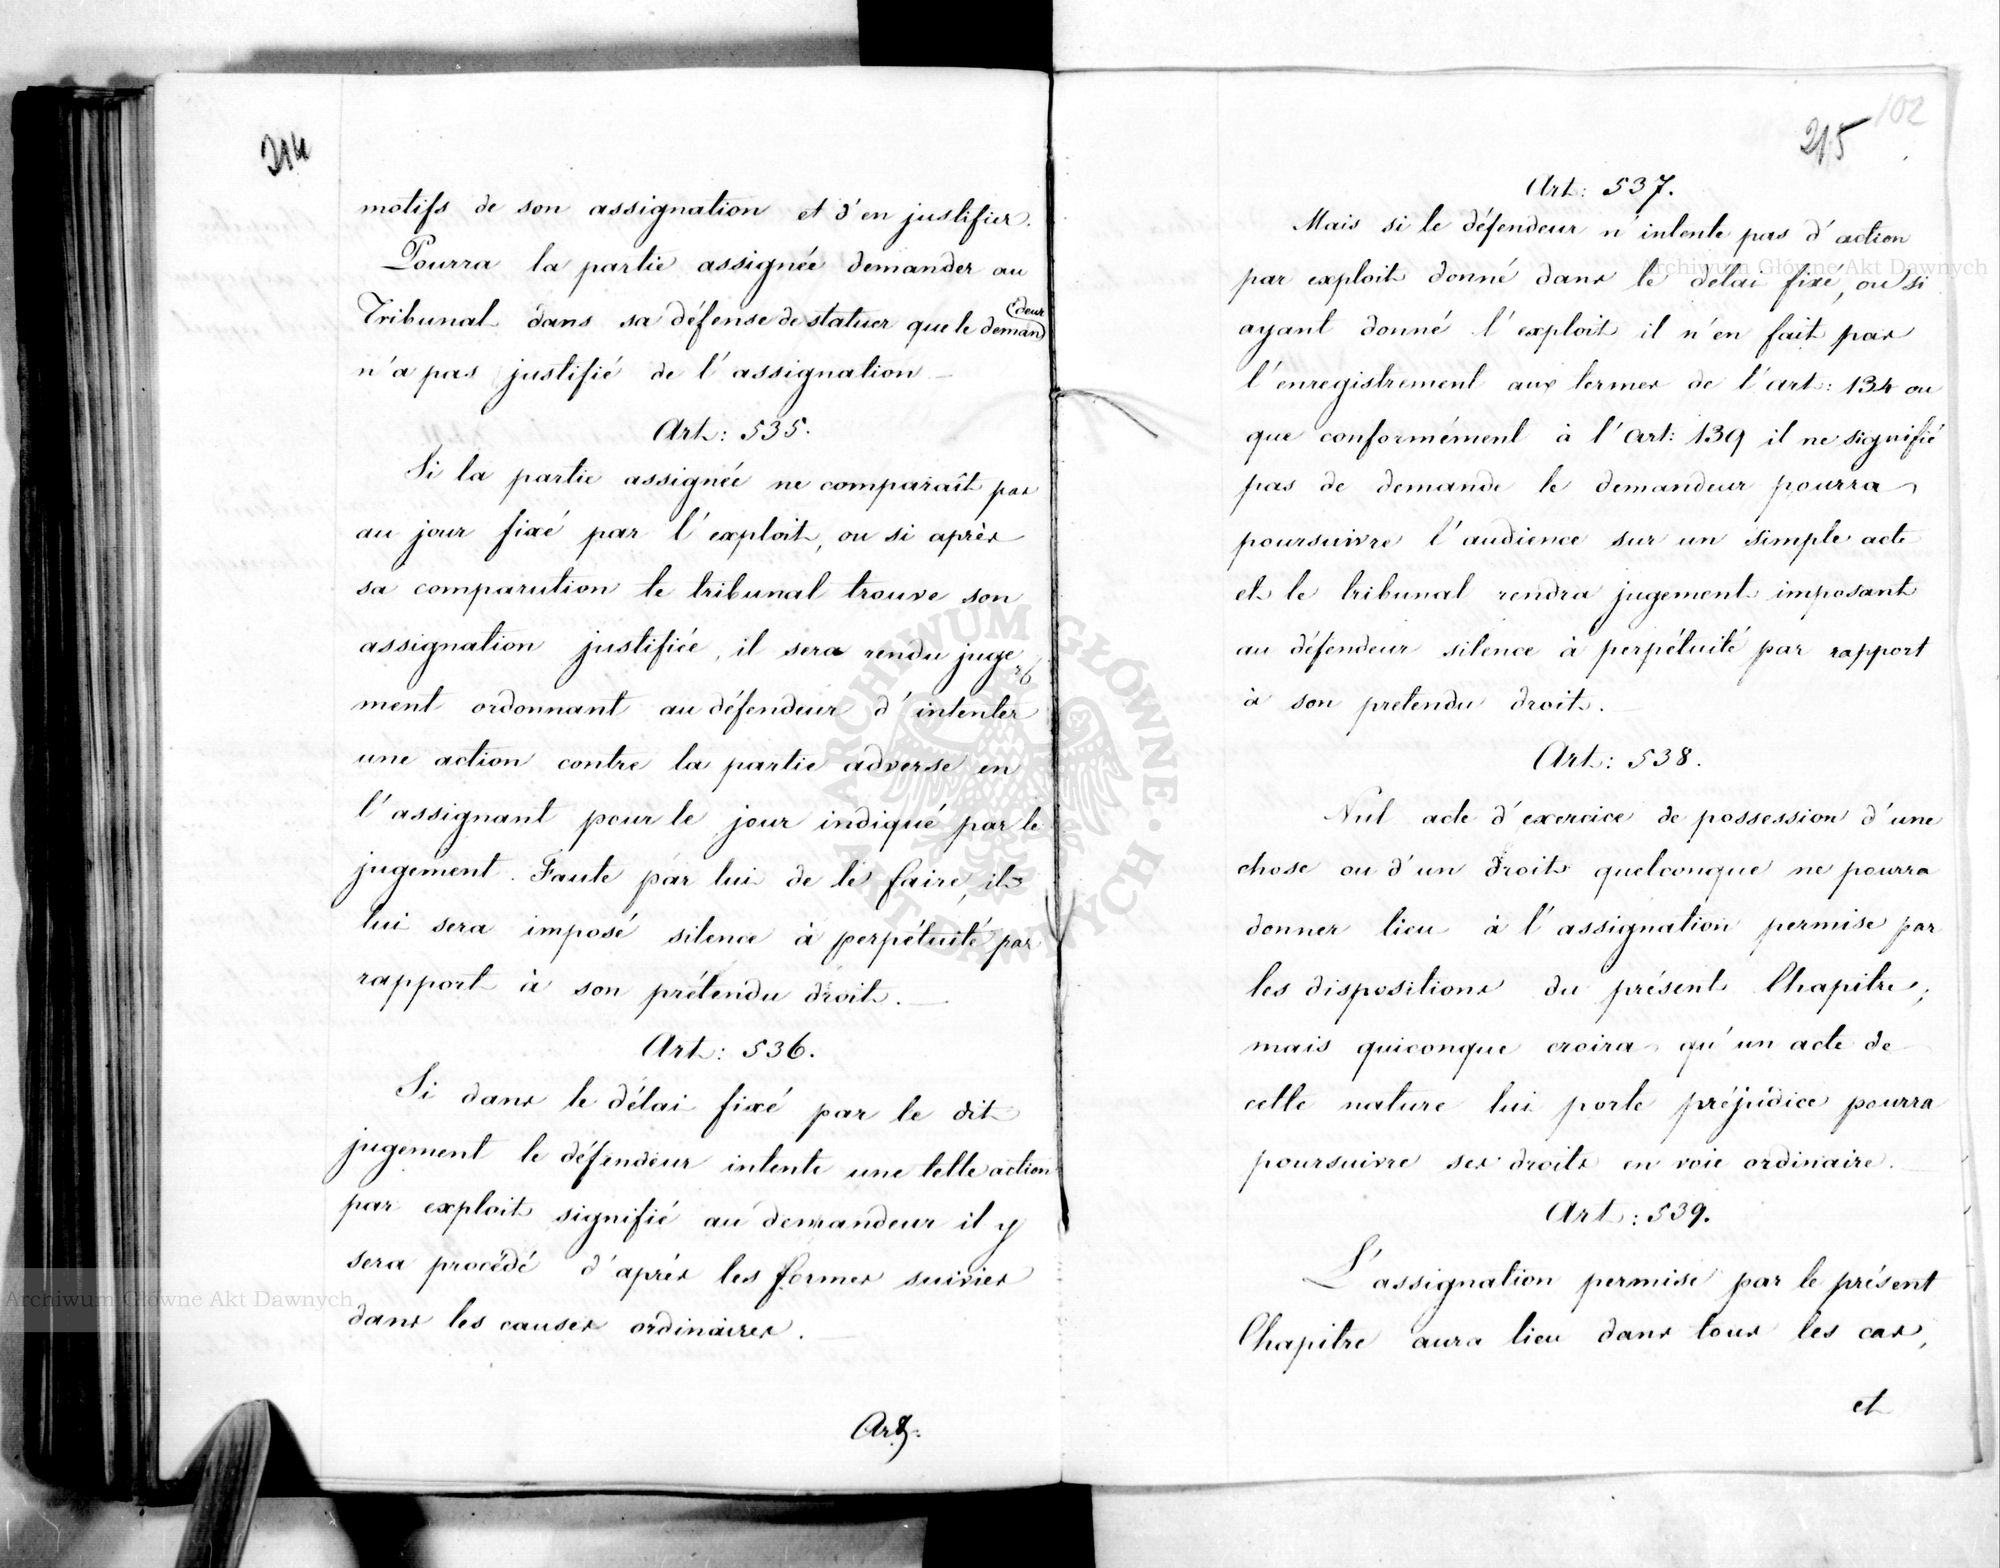 214
motifs de son assignation et s'en justifier.
Pourra la partie assignée demander au
Tribunal dans sa défense de statuer que le demandeur
n'a pas justifié de l'assignation _
Art: 535.
Si la partie assignée ne comparaît pas
au jour fixé par l'exploit, ou si après
sa comparution le tribunal trouve son
assignation justifiée, il sera rendu juge
ment ordonnant au défendeur d'intenter
une action contre la partie adverse en
l'assignant pour le jour indiqué par le
jugement. Faute par lui de le faire, il
lui sera imposé silence à perpétuité par
rapport à son prétendu droit. _
Art: 536.
Si dans le délai fixé par le dit
jugement le défendeur intente une telle action
par exploit signifié au demandeur il y
sera procédé d'après les formes suivies
dans les causes ordinaires. _
Art:
102
215
Art: 537.
Mais si le défendeur n'intente pas d'action
par exploit donné dans le délai fixé, ou si
ayant donné l'exploit il n'en fait pas
l'enregistrement aux termes de l'art: 134 ou
que conformément à l'art: 139 il ne signifié
pas de demande le demandeur pourra
poursuivre l'audience sur un simple acte
et le tribunal rendra jugement imposant
au défendeur silence à perpétuité par rapport
à son pretendu droit. _
Art: 538.
Nul acte d'exercice de possession d'une
chose ou d'un droit quelconque ne pourra
donner lieu à l'assignation permise par
les dispositions du présent Chapitre;
mais quiconque croira qu'un acte de
cette nature lui porte préjudice pourra
poursuivre ses droits en voie ordinaire. _
Art: 539.
L'assignation permise par le présent
Chapitre aura lieu dans tous les cas,
et
Archiwum Główne Akt Dawnych
Archiwum Główne Akt Dawnych
ARCHIWUM GŁÓWNE AKT DAWNYCH